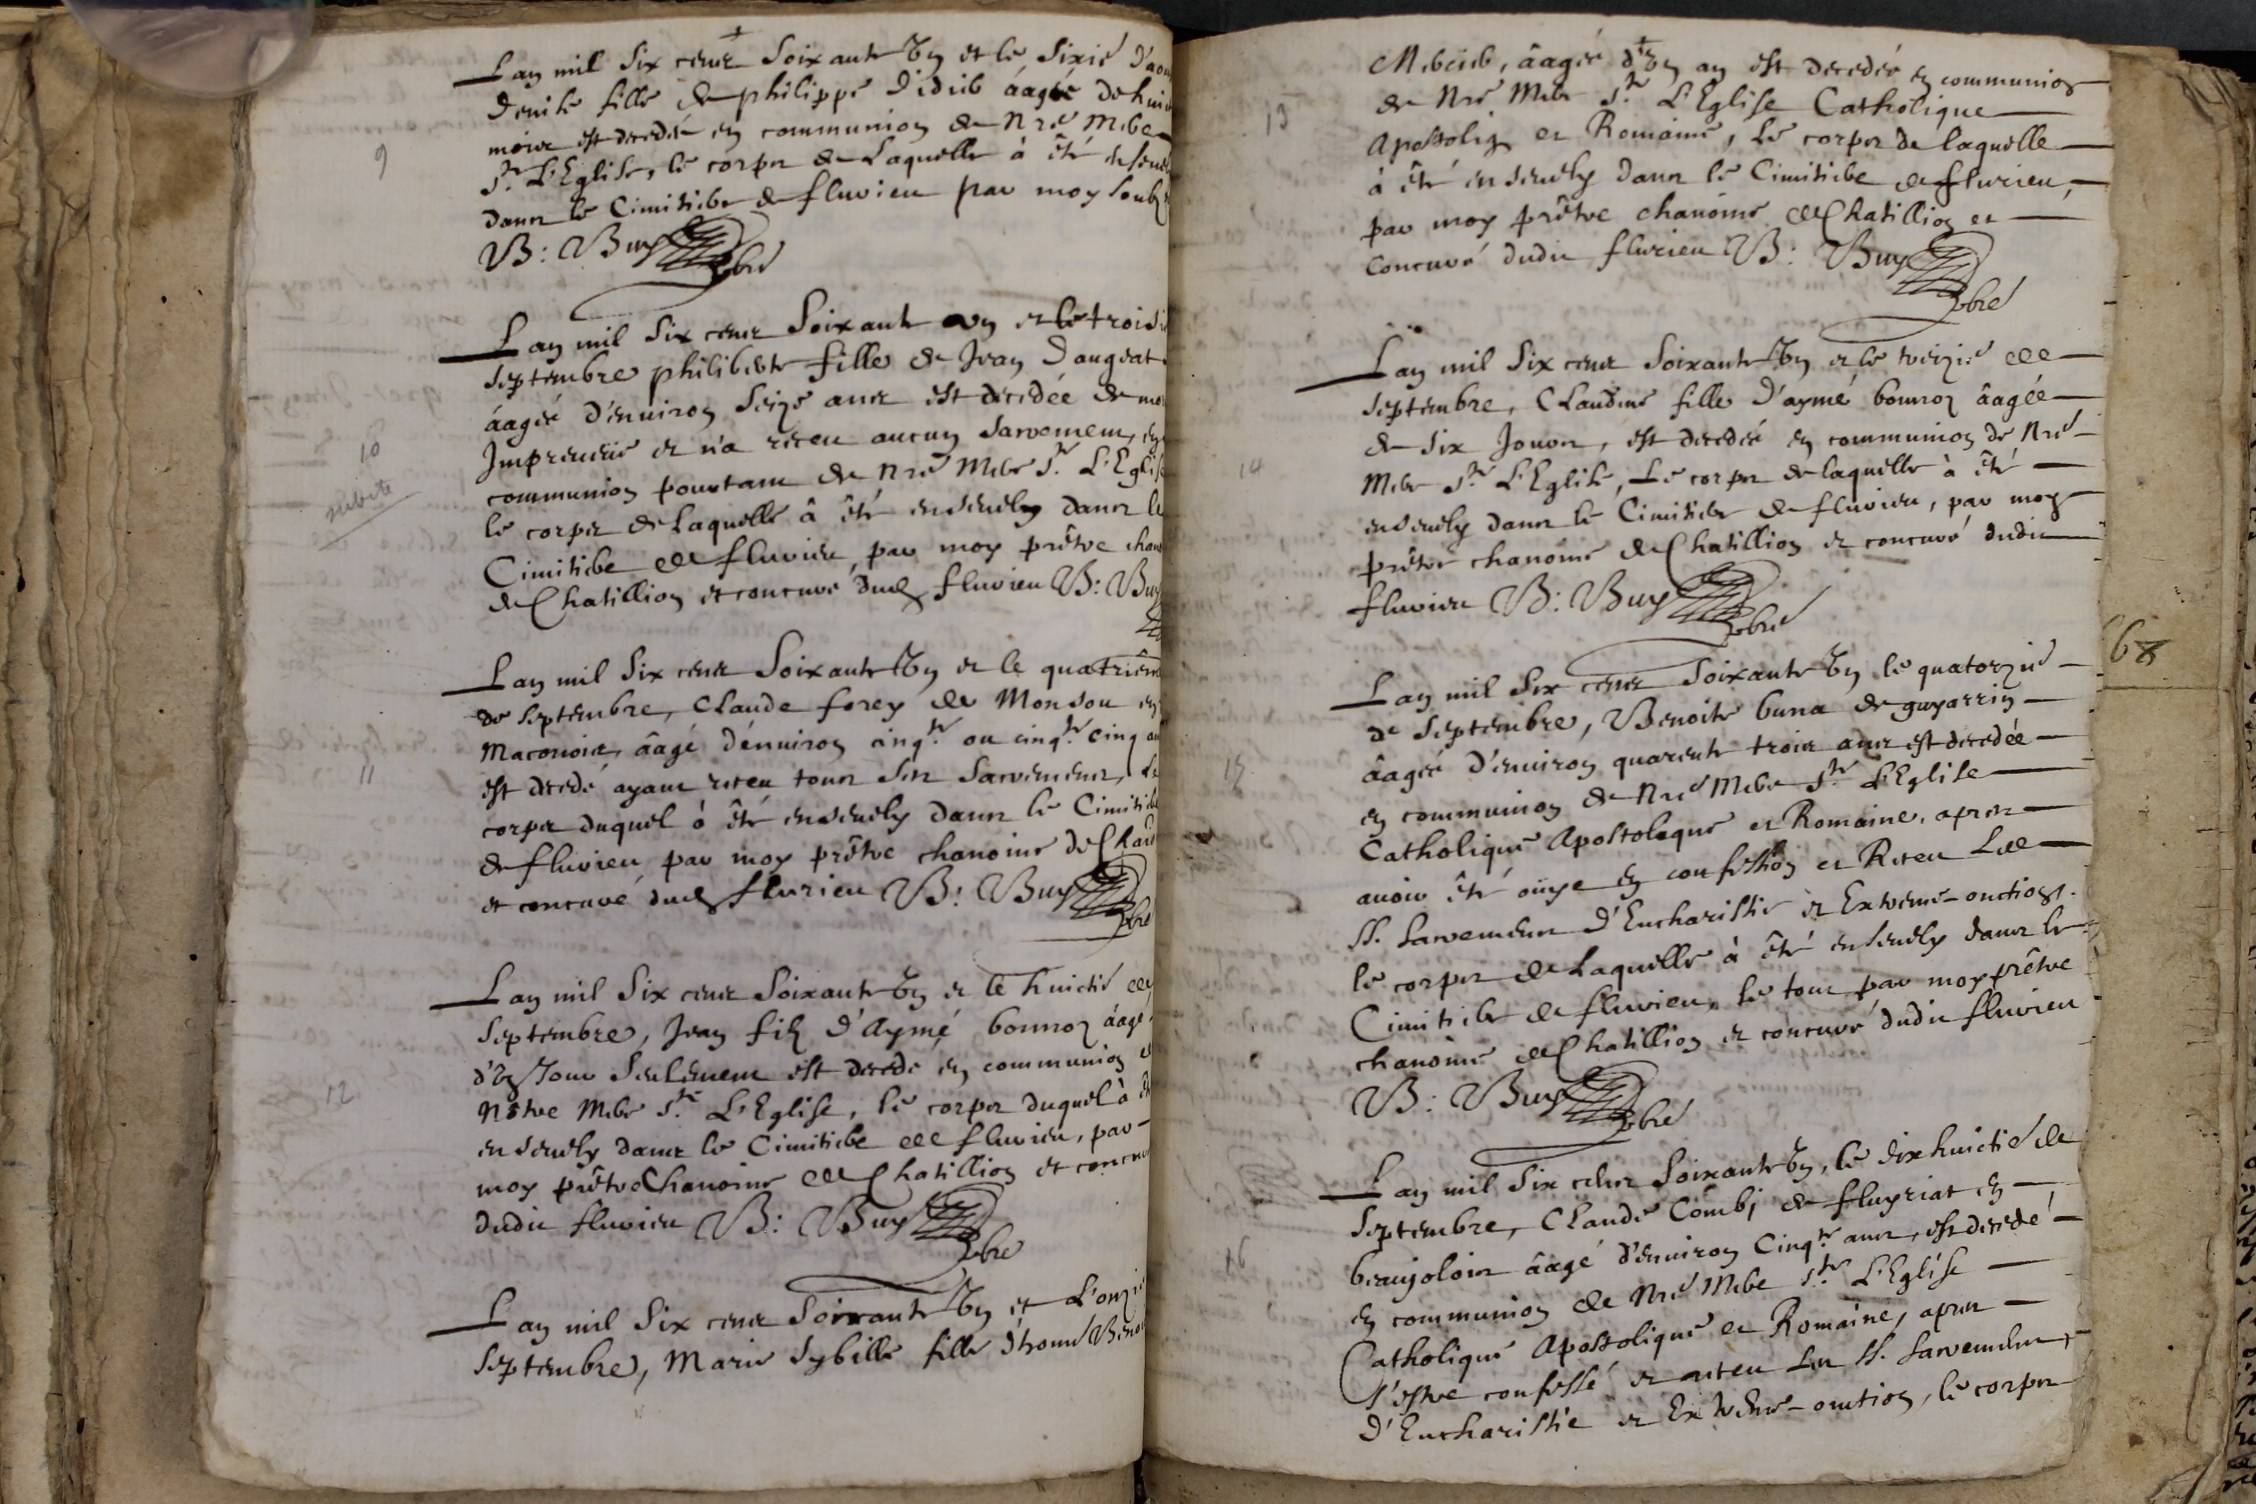 Lan mil six cens soixante Vn et le sixie d'aou
denise fille de philippe didieb áagée de huic
mois est decedée en communion de Nre Mebe
Ste L'Eglise, le corps de Laquelle à êté enseue
dans le Cimitiebe de fluvieu par moy soubz
B: Buy pbre
9
Lan mil six cens soixante vn et le troisi
septembre philiberte fille de Jean Daugeat
áagée d'enuiron seize ans est decedée de mo
Impreueue et n'a receu aucun sacremens, en
communion pourtant de Nre Mebe Ste L'Eglise
le corps de Laquelle â êté enseuely dans le
Cimitiebe de fluvieu par moy prêtre chano
de Chatillion et concuré dud fluvieu B: Buy
10
subite
Lan mil six cens soixante Vn et le quatriême
de septembre, Claude forey de Monsou en
Maconois, âagé d'enuiron cinqte ou cinqte cinq an
est decedé ayant receu tous ses sacremens, Le
corps duquel à êté enseuely dans le Cimitiebe
de fluvieu par moy prêtre chanoine de Chati
et concuré dud flurieu B: Buy
pbre
11
Lan mil six cens soixante Vn et le huictie de
septembre, Jean filz d'Aymé bonnoz áagé
d'Vn Jour seulement est decedé en communion d
Nôtre Mebe Ste L'Eglise, le corps duquel à êt
enseuely dans le Cimitiebe de fluvieu, par
moy prêtre Chanoine de Chatillion et concur
dudit fluvieu B: Buy
pbre
12
Lan mil six cens soixante Vn et L'onzie
septembre, Marie sybille fille d'honne Benoi
Mebcieb, âagée d'Vn an est decedée en communion
de Nre Mebe Ste L'Eglise Catholique
Apostoliq et Romaine, Le corps de laquelle
à êté enseuely dans le Cimitiebe de flurieu,
par moy prêtre chanoine de Chatillion et
concuré dudit flurieu B: Buy
pbre
13
Lan mil six cens soixante Vn et le treizie de
septembre, Claudine fille d'aymé bonnoz âagée
de six Jours, est decedée en communion de Nre
Mebe Ste L'Eglise, Le corps de laquelle à êté
enseuely dans le Cimitiebe de fluvieu, par moy
prêtre chanoine de Chatillion et concuré dudit
fluvieu B: Buy
pbre
14
Lan mil six cens soixante Vn le quatorzie
de septembre, Benoite buna de guyarrin
âagée d'enuiron quarente trois ans est decedée
en communion de Nre Mebe Ste L'Eglise
Catholique Apostolique et Romaine, apres
auoir êté oüye en confession et Receu Les
SS. sacremens d'Eucharistie et Extreme-onction.
le corps de Laquelle à êté enseuely dans le
Cimitiebe de fluvieu, le tout par moy prêtre
chanoine de Chatillion et concuré dudit fluvieu
B: Buy
pbre
15
68
Lan mil six cens soixante Vn, le dixhuictie de
septembre, Claude Combj de fluyriat en
beaujolois âagé d'enuiron Cinqte ans, est decedé
en communion de Nre Mebe Ste L'Eglise
Catholique Apostolique et Romaine, apres
s'estre confessé et receu Les SS. sacremens,
d'Eucharistie et Extreme-onction, le corps
16